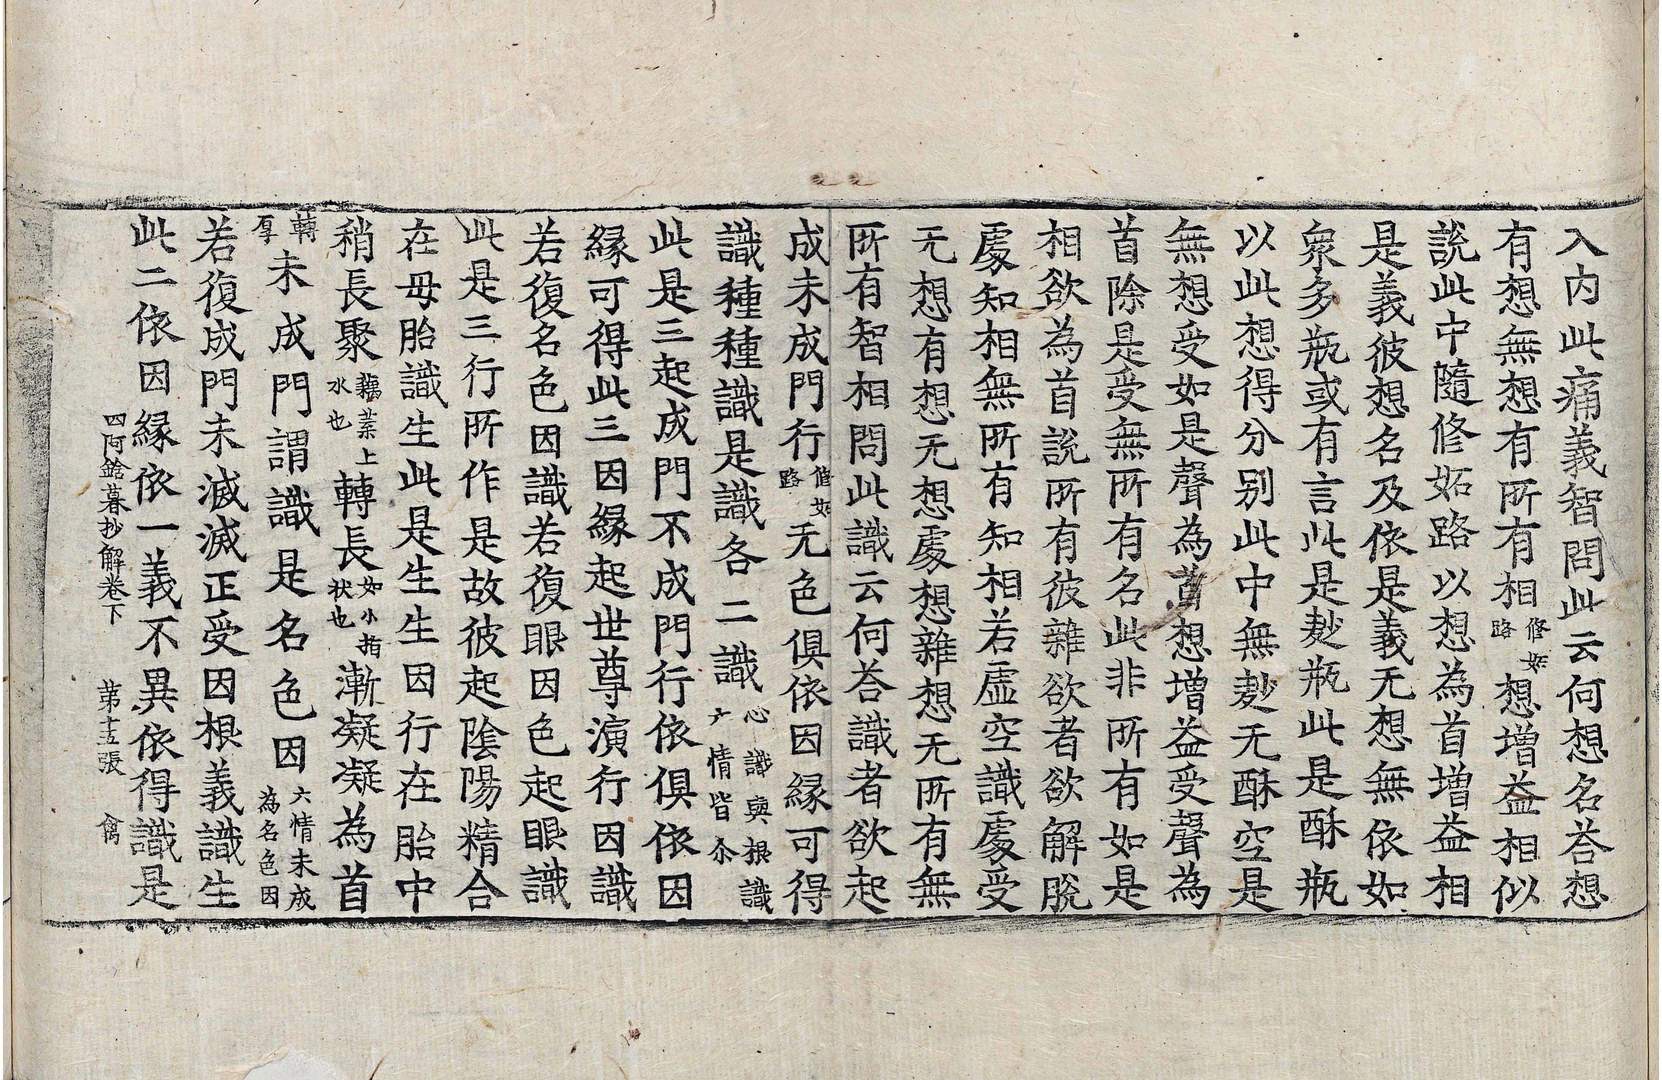 入內此痛義智問此云何想名荅想
有想無想有所有相修妬路想增益相似
說此中隨修妬路以想為首增益相
是義彼想名及依是義无想無依如
衆多瓶或有言此是麨瓶此是酥瓶
以此想得分别此中無麨无酥空是
無想受如是聲為首想增益受聲為
首除是受無所有名此非所有如是
相欲為首說所有彼雜欲者欲解脫
處知相無所有知相若虛空識處受
无想有想无想處想雜想无所有無
所有智相問此識云何荅識者欲起
成未成門行修妬路无色俱依因緣可得
識種種識是識各二識心識與根識六情皆尒
此是三起成門不成門行依俱依因
緣可得此三因緣起世尊演行因識
若復名色因識若復眼因色起眼識
此是三行所作是故彼起陰陽精合
在母胎識生此是生生因行在胎中
稍長聚藕葉上水也轉長如小指状也漸凝凝為首
轉厚未成門謂識是名色因六情未成為名色因
若復成門未滅滅正受因根義識生
此二依因緣依一義不異依得識是
四阿鋡暮抄解卷下 第十五張 禽